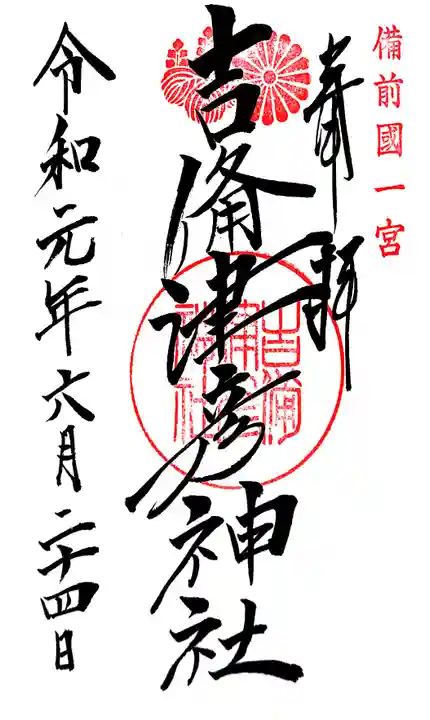 備前國一宮
奉拝
吉備津彦神社
令和元年六月二十四日